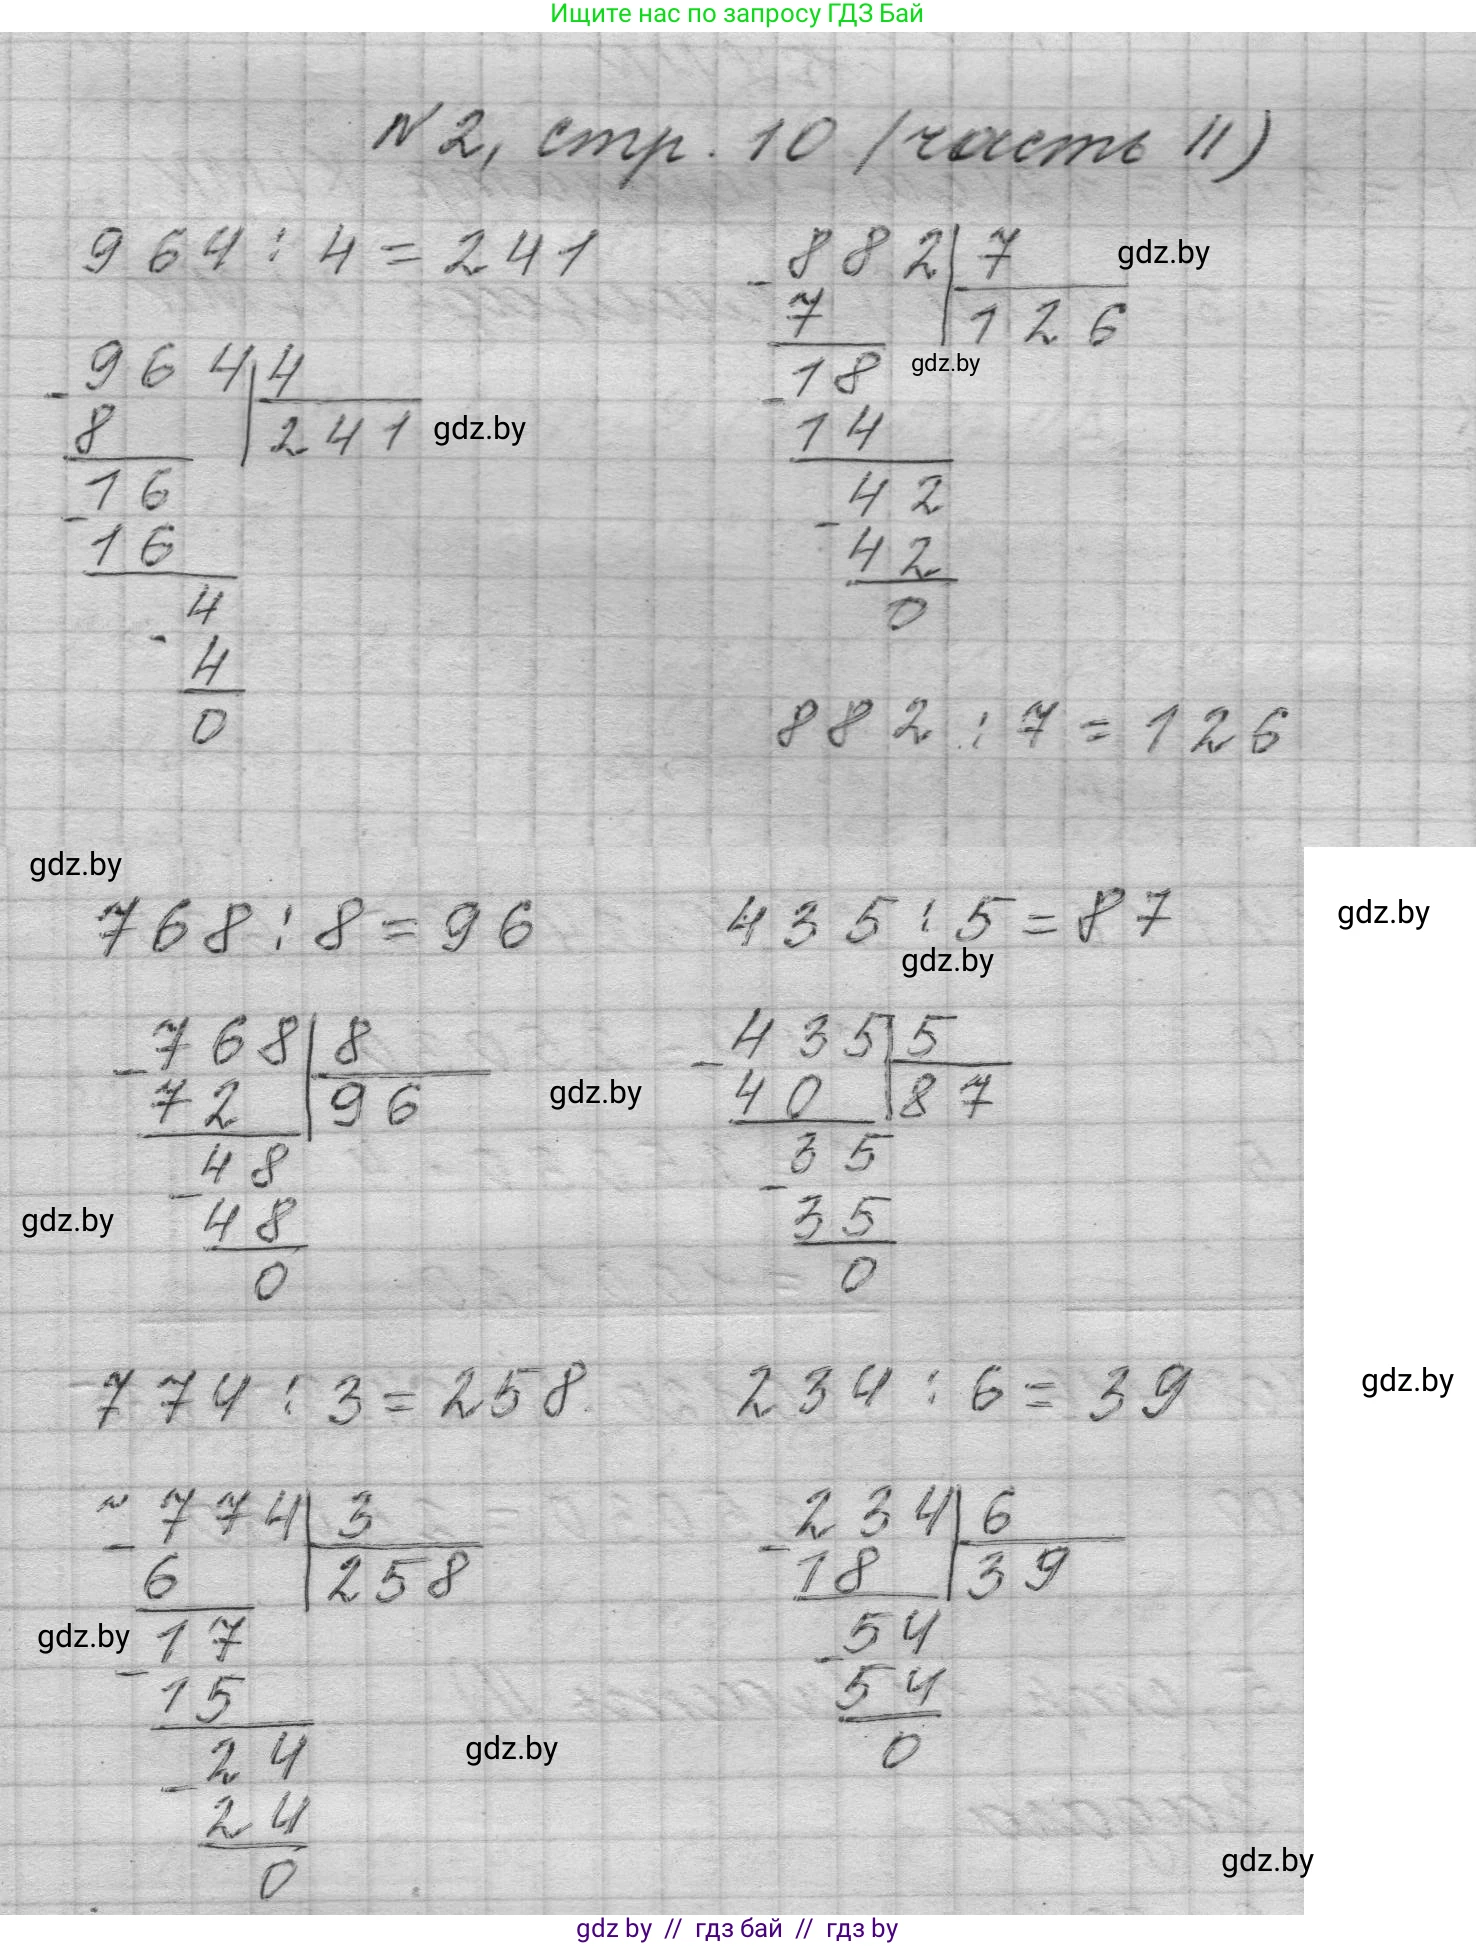 Ищите нас по запросу ГДЗ Бай
№2, стр. 10 (часть II)
964 : 4 = 241
964 4
- 8 241 gdz.by
16
- 16
4
- 4
0
- 882 7 gdz.by
7 126
18 gdz.by
- 14
42
- 42
0
882 : 7 = 126
gdz.by
768 : 8 = 96
- 768 8
72 96 gdz.by
48
- 48
gdz.by
0
435 : 5 = 87 gdz.by
gdz.by
- 435 5
40 87
35
- 35
0
774 : 3 = 258.
- 774 3
6 258
gdz.by 17
- 15
24 gdz.by
- 24
0
234 : 6 = 39 gdz.by
- 234 6
18 39
54
- 54
0
gdz.by
gdz by // гдз бай // гдз by